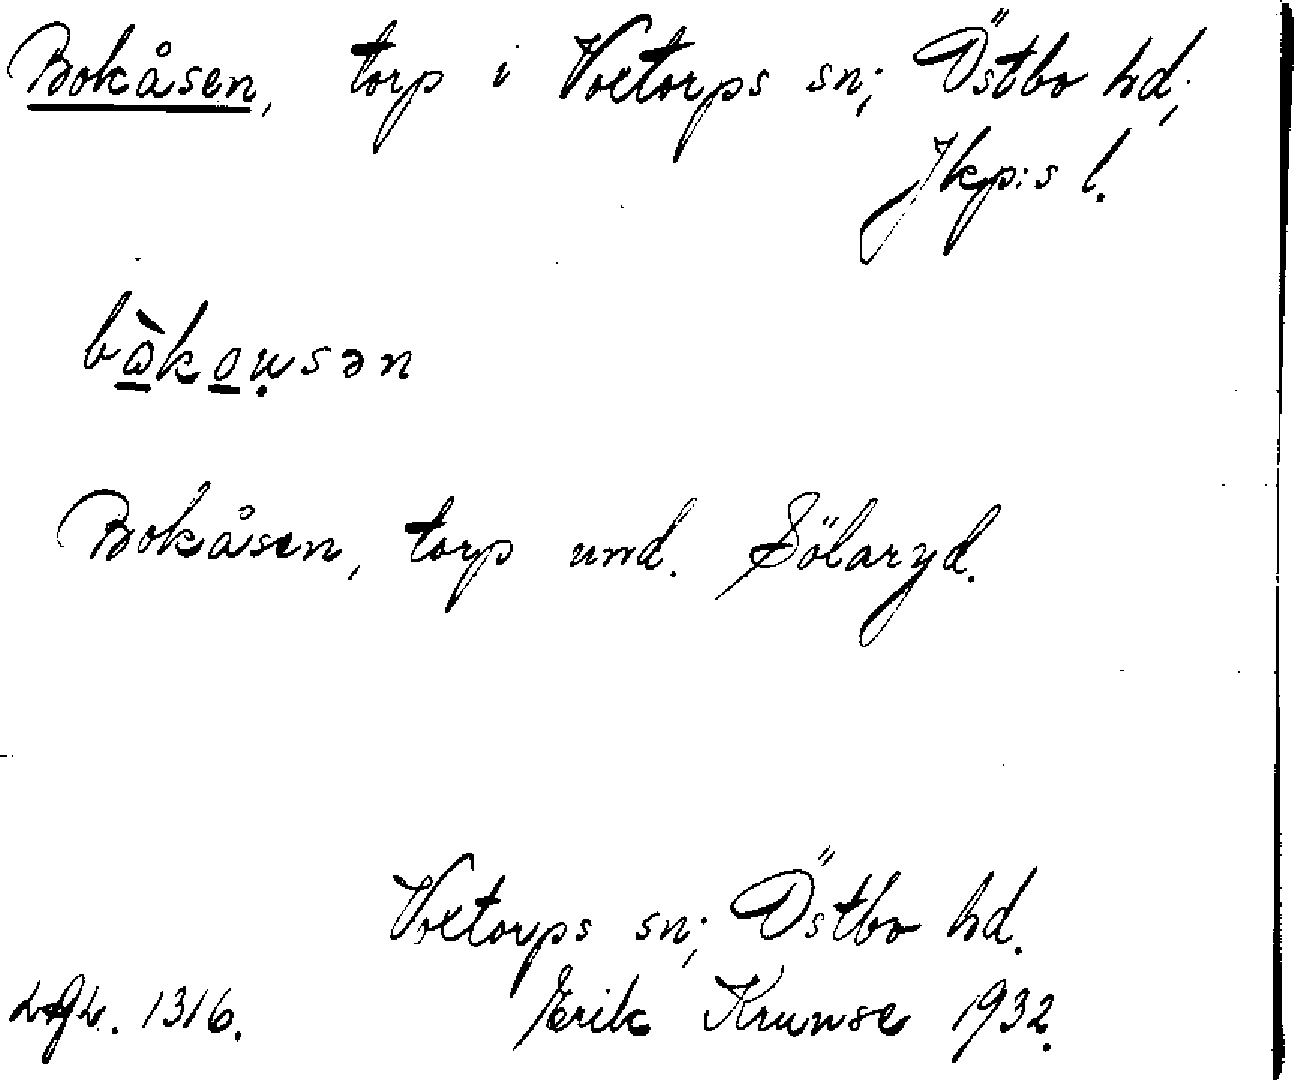 Bokåsen, torp i Voxtorps sn; Östbo hd;
Jkp:s l.
bòkowsən
Bokåsen, torp und. Sölaryd.
Voxtorps sn; Östbo hd.
1316. Erik Krunse 1932.